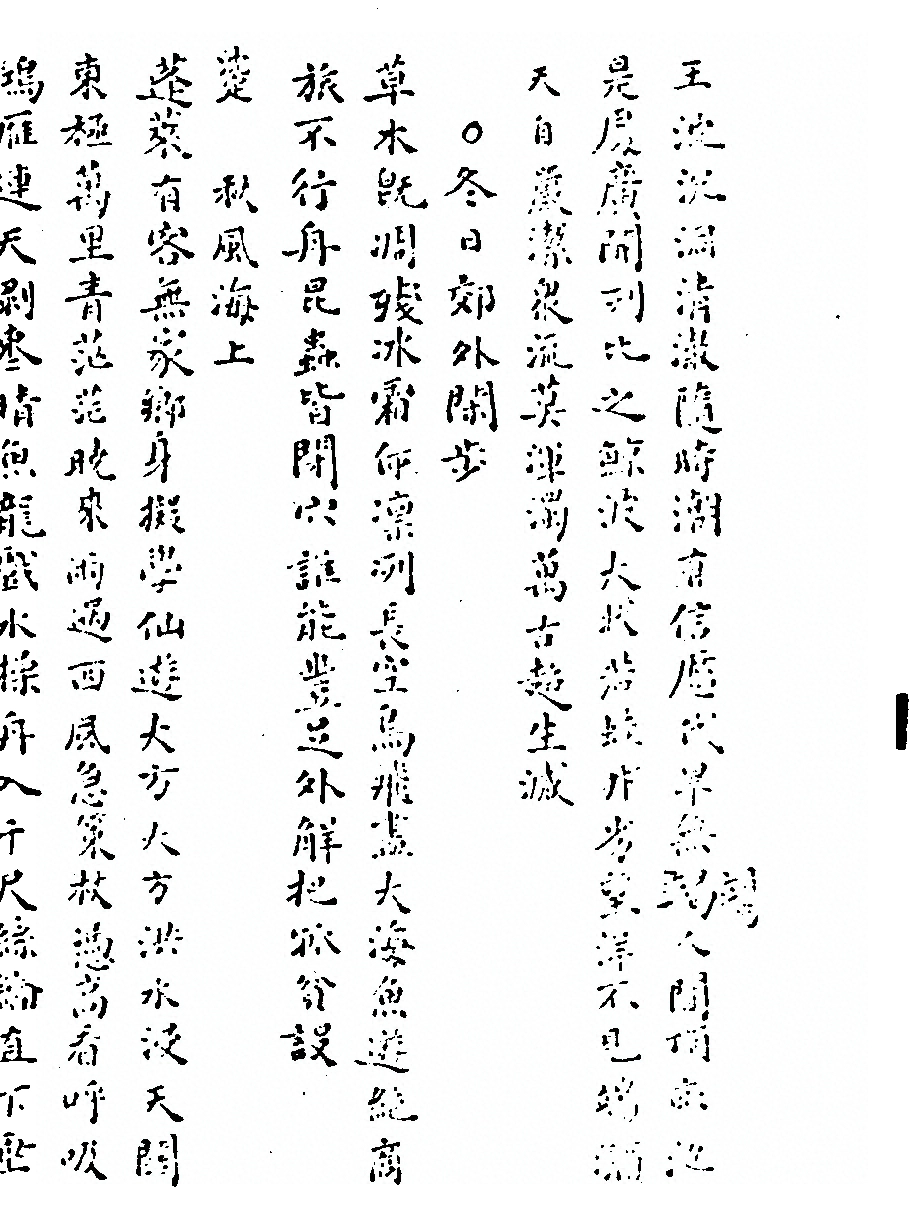 王波沉洞清澈隨時潮有信歷代早無竭人間池
是處廣開列比之鯨波大狀若蛙井望洋不見端
天自嚴潔泉流莫渾濁萬古超生滅
○冬日郊外閑步
草木既凋殘冰霜何凛冽長空鳥飛盡大海魚遊絕商
旅不行舟昆蟲皆閉穴誰能豐足外解把狐貉設
楚 秋風海上
蓬萊有客無家鄉身擬學仙遊大方大方洪水浸天闊
東極萬里青茫茫晚來雨過西風急策杖憑高看呼吸
鴻雁連天剝棗晴魚龍戲水操舟入千尺絲綸直下垂